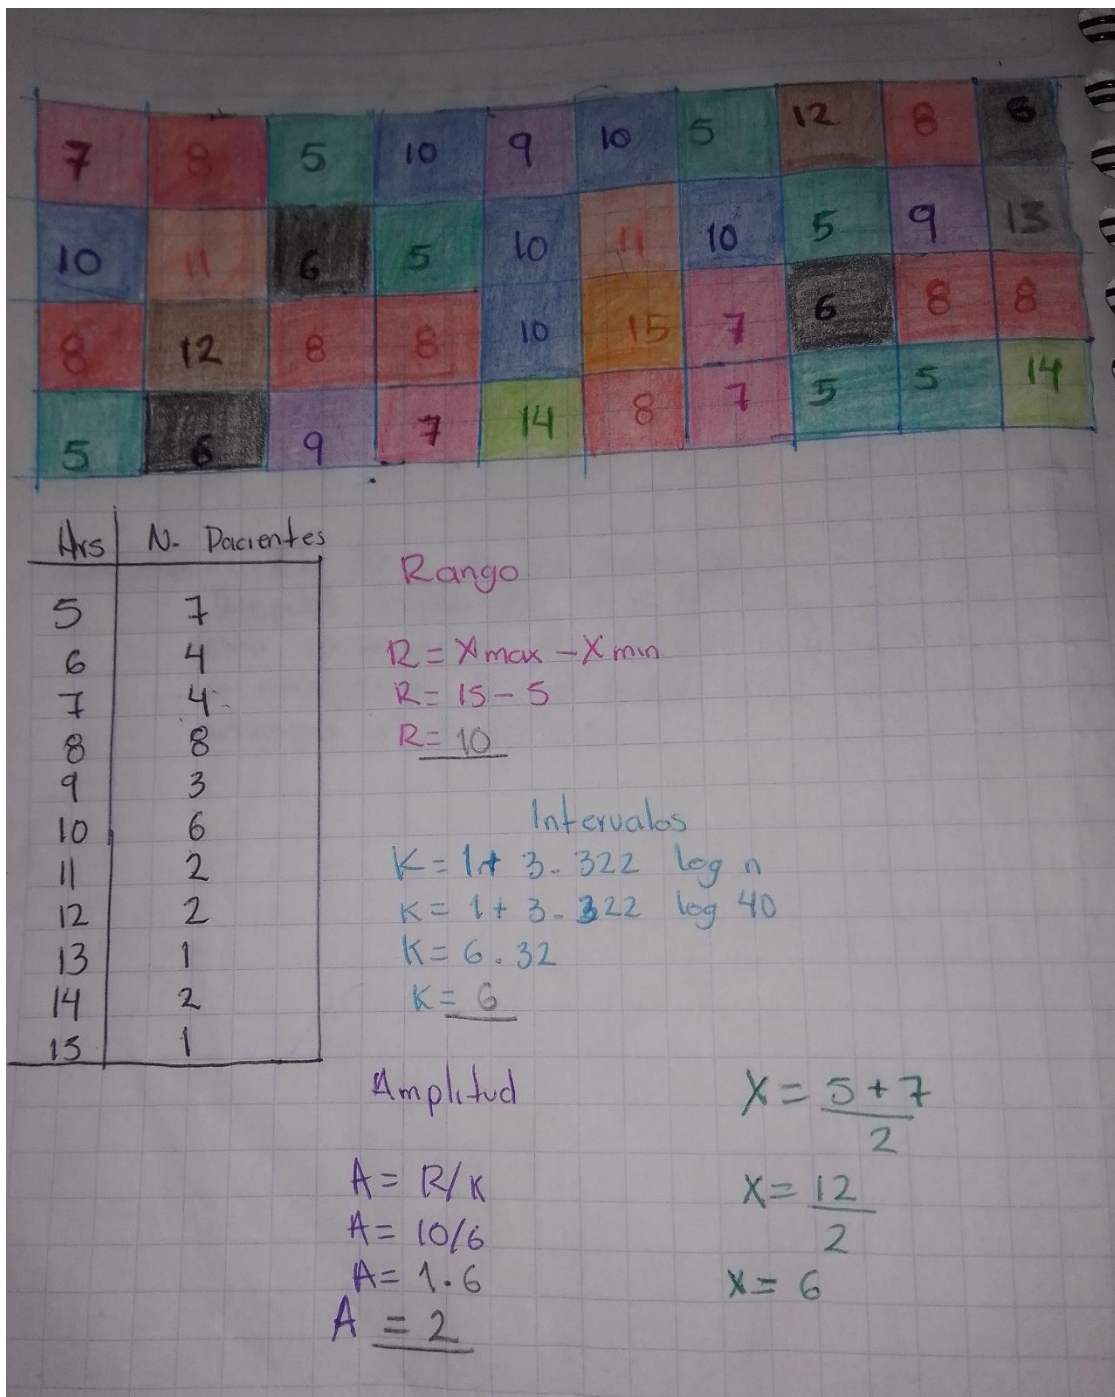 7 8 5 10 9 10 5 12 8 6
10 11 6 5 10 11 10 5 9 13
8 12 8 8 10 15 7 6 8 8
5 6 9 7 14 8 7 5 5 14
Hrs N. Pacientes
5 7
6 4
7 4
8 8
9 3
10 6
11 2
12 2
13 1
14 2
15 1
Rango
R = Xmax - Xmin
R = 15 - 5
R = 10
Intervalos
K = 1 + 3.322 log n
K = 1 + 3.322 log 40
K = 6.32
K = 6
Amplitud
A = R/K
A = 10/6
A = 1.6
A = 2
X = 5 + 7
2
X = 12
2
X = 6